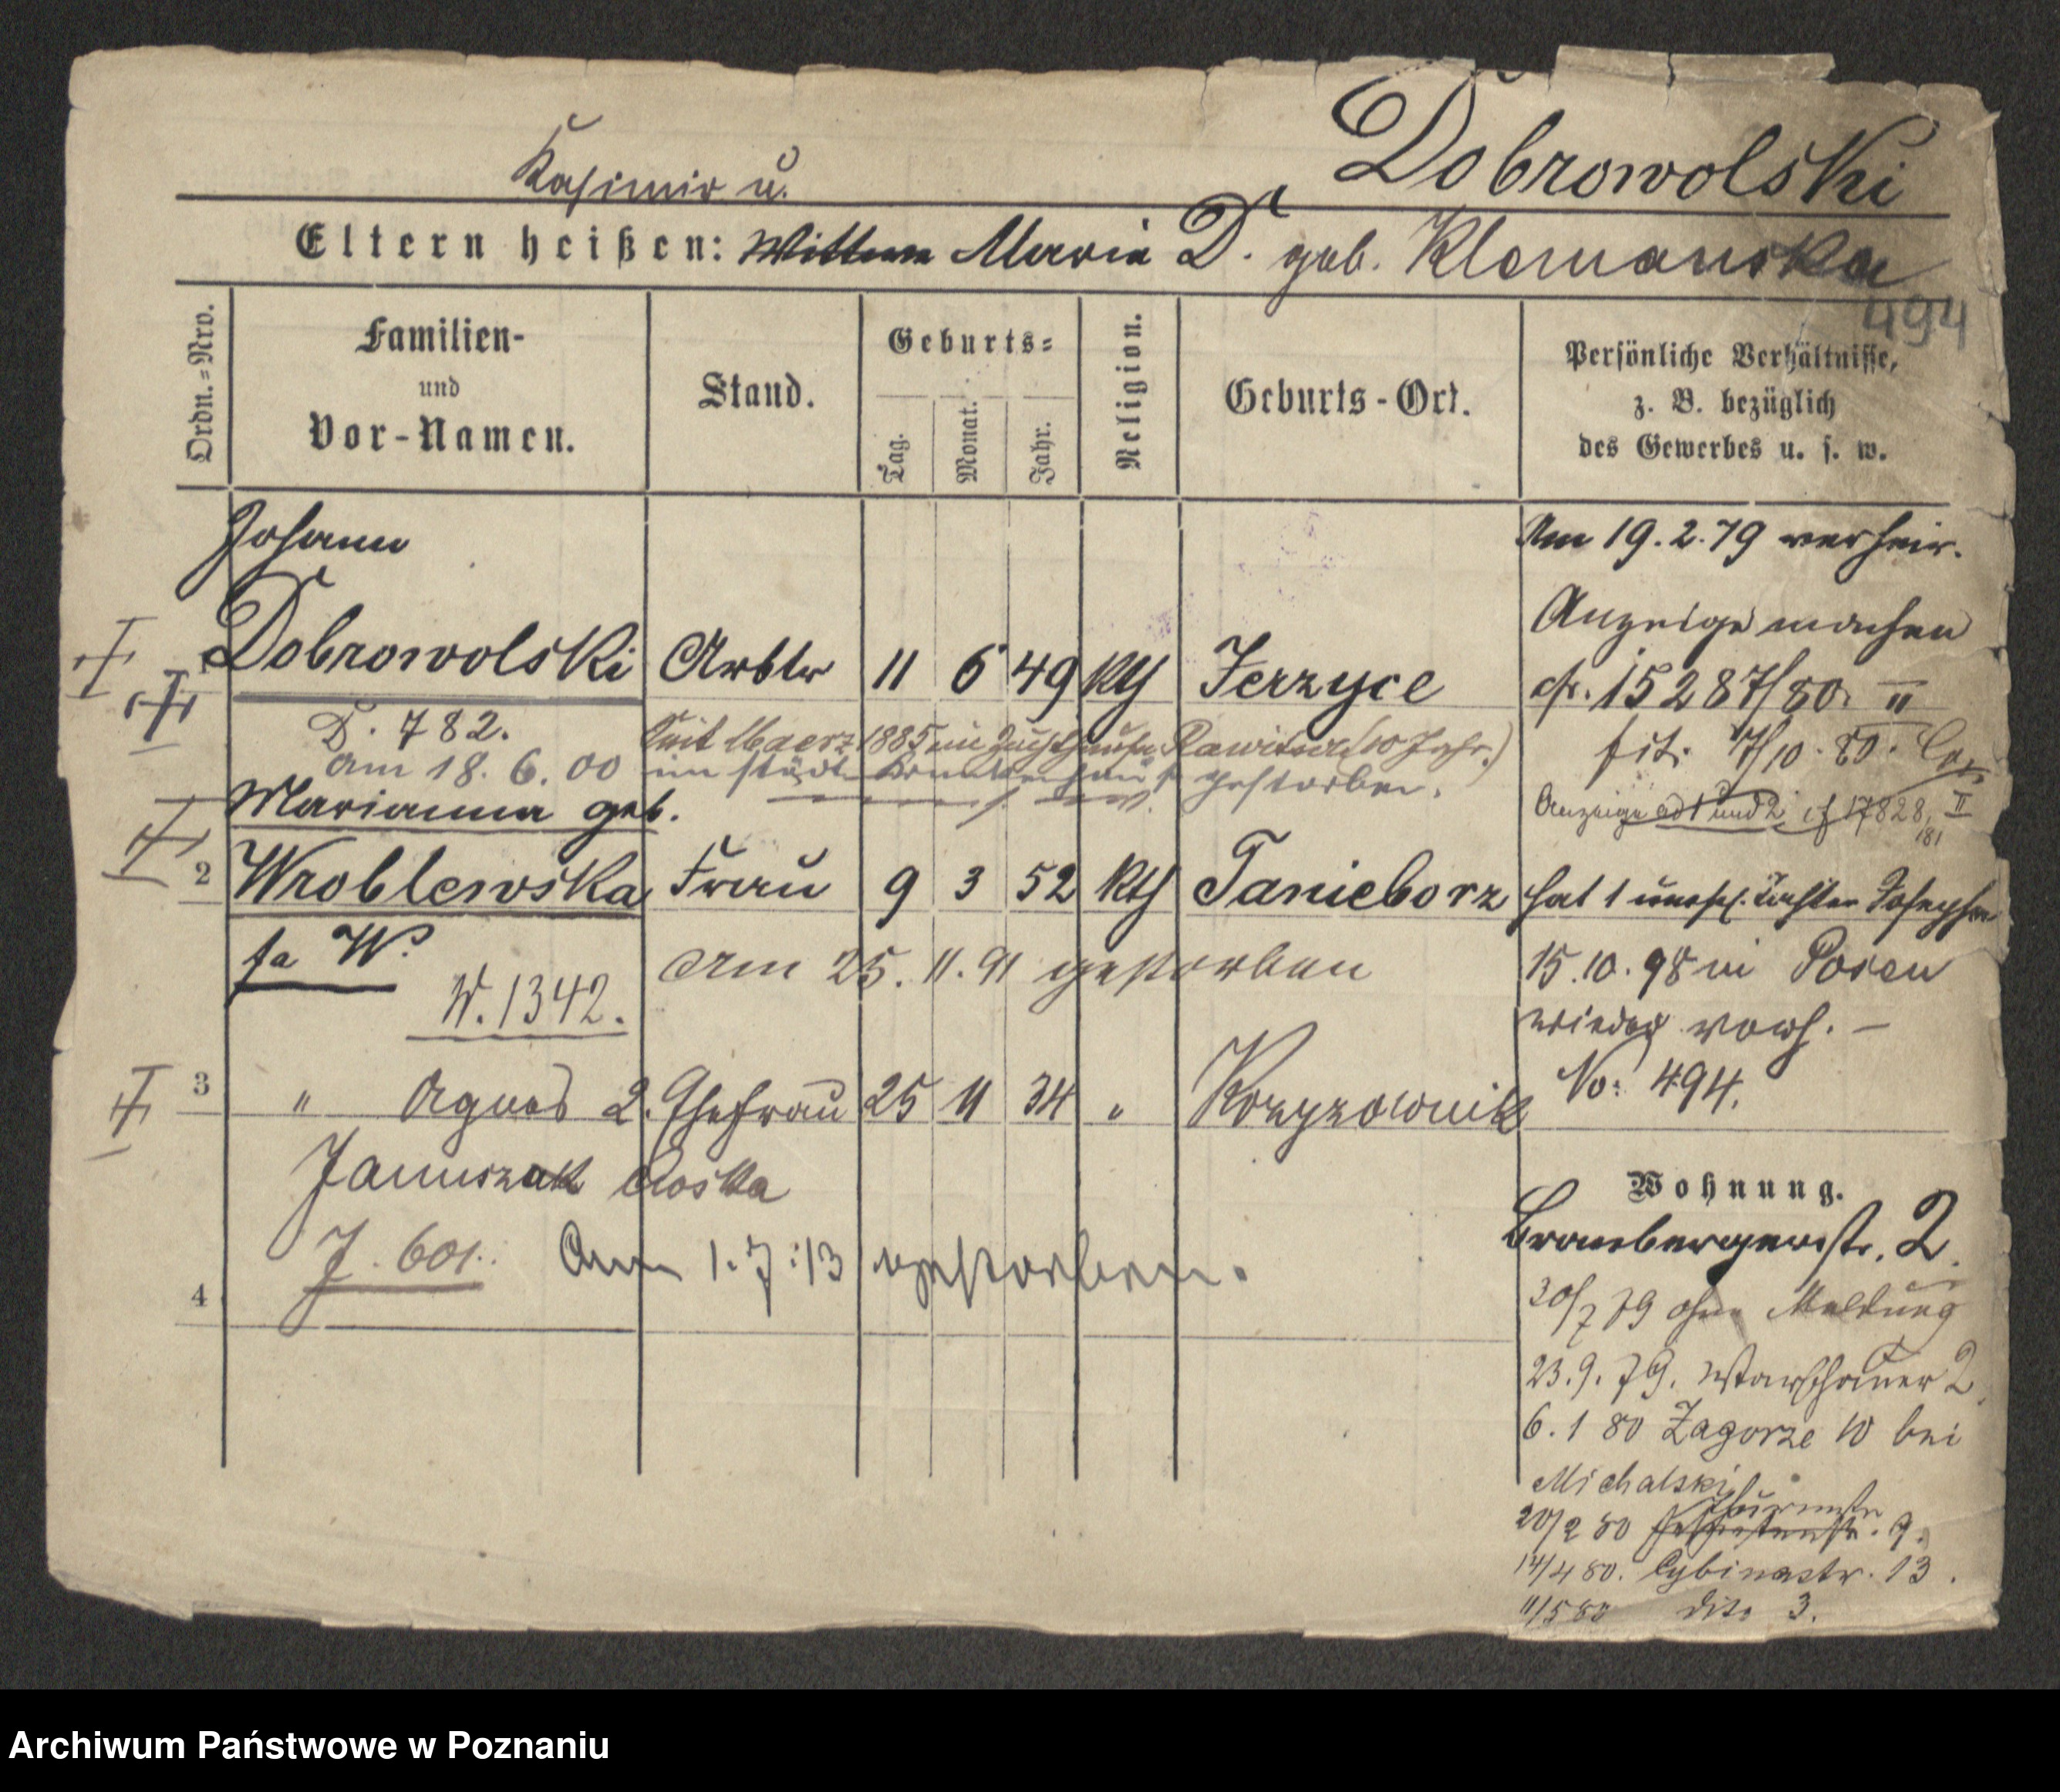 Dobrowolski
Kasimir u.
Eltern heißen: Wittwe Maria D. geb. Klemanska
494
Ordn.=Nro.
Familien-
und
Vor-Namen.
Stand.
Geburts=
Tag.
Monat.
Jahr.
Religion.
Geburts-Ort.
Persönliche Verhältnisse,
z. B. bezüglich
des Gewerbes u. s. w.
Johann
Am 19.2.79 verheir.
Anzeige machen
Dobrowolski Arbtr 11 6 49 kth Jerzyce
cfr. 15287/80. II
D. 782.
Seit Maerz 1885 im Zuchthause Rawitsch (10 Jahr.)
fit. 17/10. 80.
am 18. 6. 00 im städt. Krankenhause gestorben.
Anzeige ad 1 und 2 cf 17828 II
/81
Marianna geb.
2 Wroblewska Frau 9 3 52 kth Tanieborz
hat 1 unehl. Tochter Josepha
fa W.
am 25. 11. 91 gestorben
15.10.98 in Posen
W. 1342.
wieder verh. —
No: 494.
3 " Agnes 2. Ehefrau 25 11 34 " Krzyzownik
Januszak
J. 601. Am 1. 7. 13 gestorben.
4
Wohnung.
Brombergerstr. 2.
30/7 79 ohne Meldung
23.9.79. Warschauer 2
6. 1 80 Zagorze 10 bei
Michalski
Thurmstr
20/2 80 9.
14/4 80. Cybinastr. 13.
11/5 80 dito 3.
Archiwum Państwowe w Poznaniu